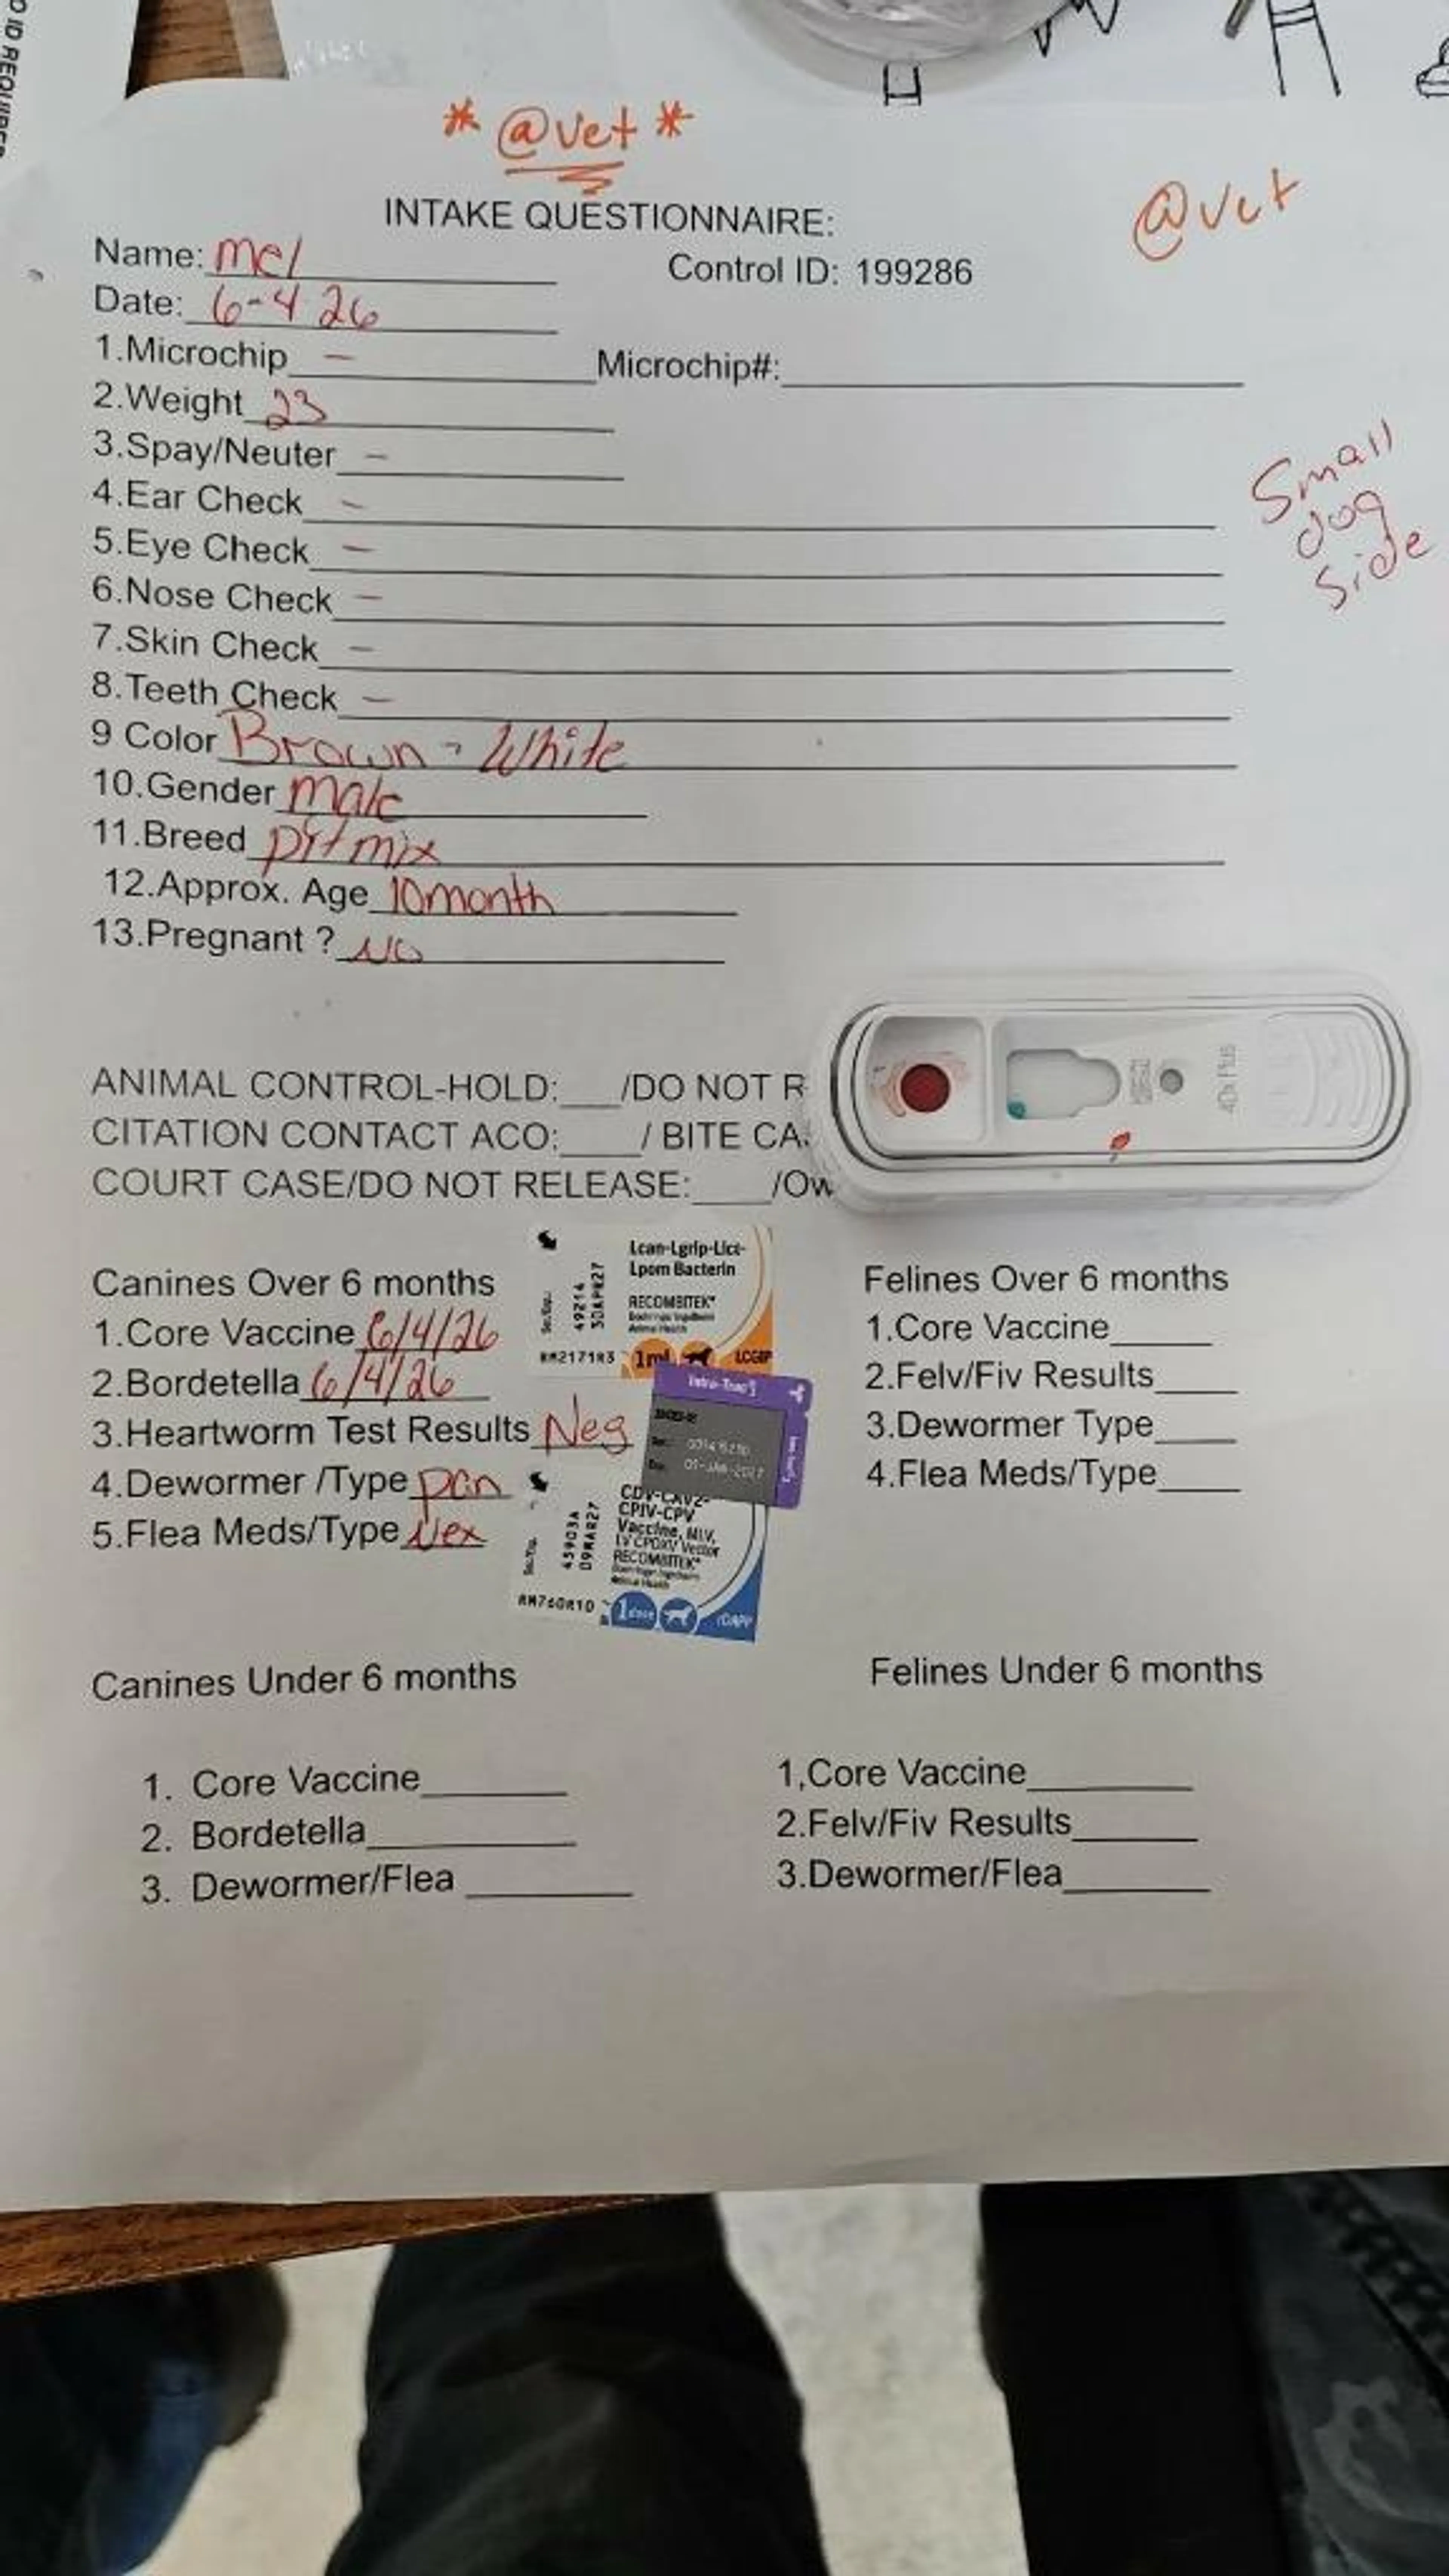 O ID REQUIRED
* @vet *
@vet
INTAKE QUESTIONNAIRE:
Name: Mel
Control ID: 199286
Date: 6-4 26
1.Microchip – Microchip#:
2.Weight 23
3.Spay/Neuter –
4.Ear Check –
5.Eye Check –
6.Nose Check –
7.Skin Check –
8.Teeth Check –
Small
dog
side
9 Color Brown - White
10.Gender male
11.Breed pit mix
12.Approx. Age 10month
13.Pregnant ? NO
4Dx Plus
ANIMAL CONTROL-HOLD:___/DO NOT R
CITATION CONTACT ACO:____/ BITE CA
COURT CASE/DO NOT RELEASE:____/Ow
Canines Over 6 months
1.Core Vaccine 6/4/26
2.Bordetella 6/4/26
3.Heartworm Test Results Neg
4.Dewormer /Type pan
5.Flea Meds/Type Nex
Lcan-Lgrip-Lict-
Lpom Bacterin
RECOMBITEK
49214
30APR27
RM2171R3
1ml
LCGIP
01-JAN-2027
CDV-CAV2-
CPIV-CPV
Vaccine, MLV,
LV CPOXV Vector
RECOMBITEK
45903A
09MAR27
RM760R10
1 dose
rDAPP
Felines Over 6 months
1.Core Vaccine
2.Felv/Fiv Results
3.Dewormer Type
4.Flea Meds/Type
Canines Under 6 months
1. Core Vaccine
2. Bordetella
3. Dewormer/Flea
Felines Under 6 months
1,Core Vaccine
2.Felv/Fiv Results
3.Dewormer/Flea